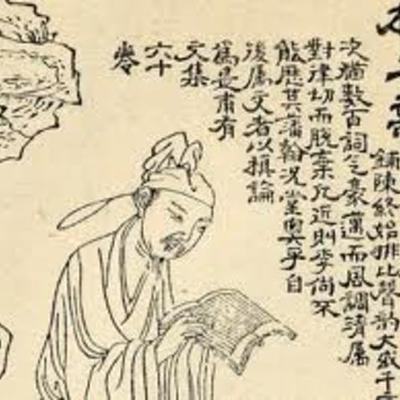 鋪陳終始排比聲韵大或千
次猶數百詞气豪邁而風調清属
對律切而脫棄凡近則李尚不
能歷其藩翰况堂奧乎自
後属文者以稹論
為是甫有
文集
六十
卷